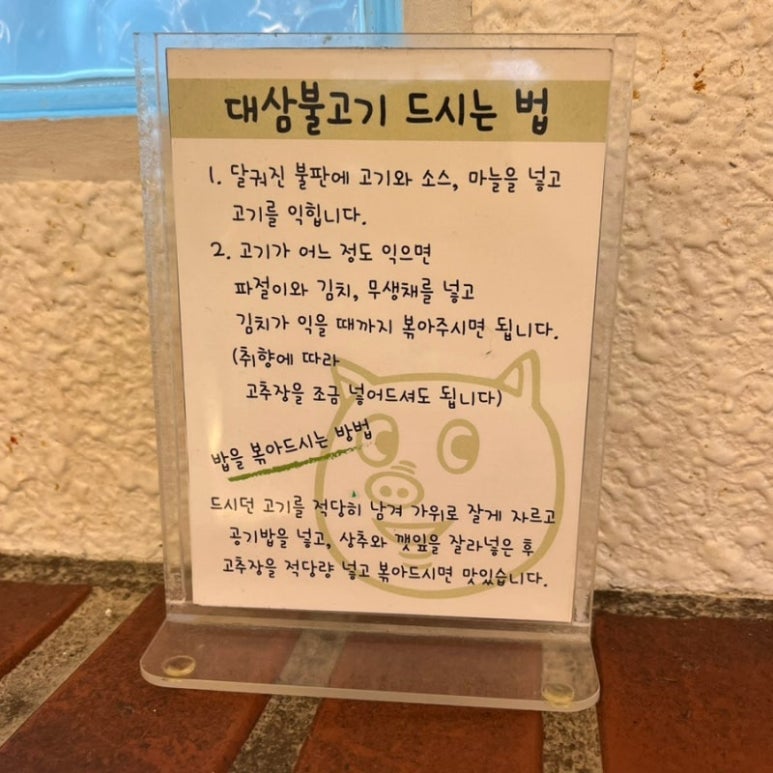 대삼불고기 드시는 법
1. 달궈진 불판에 고기와 소스, 마늘을 넣고
고기를 익힙니다.
2. 고기가 어느 정도 익으면
파절이와 김치, 무생채를 넣고
김치가 익을 때까지 볶아주시면 됩니다.
(취향에 따라
고추장을 조금 넣어드셔도 됩니다)
밥을 볶아드시는 방법
드시던 고기를 적당히 남겨 가위로 잘게 자르고
공기밥을 넣고, 상추와 깻잎을 잘라넣은 후
고추장을 적당량 넣고 볶아드시면 맛있습니다.